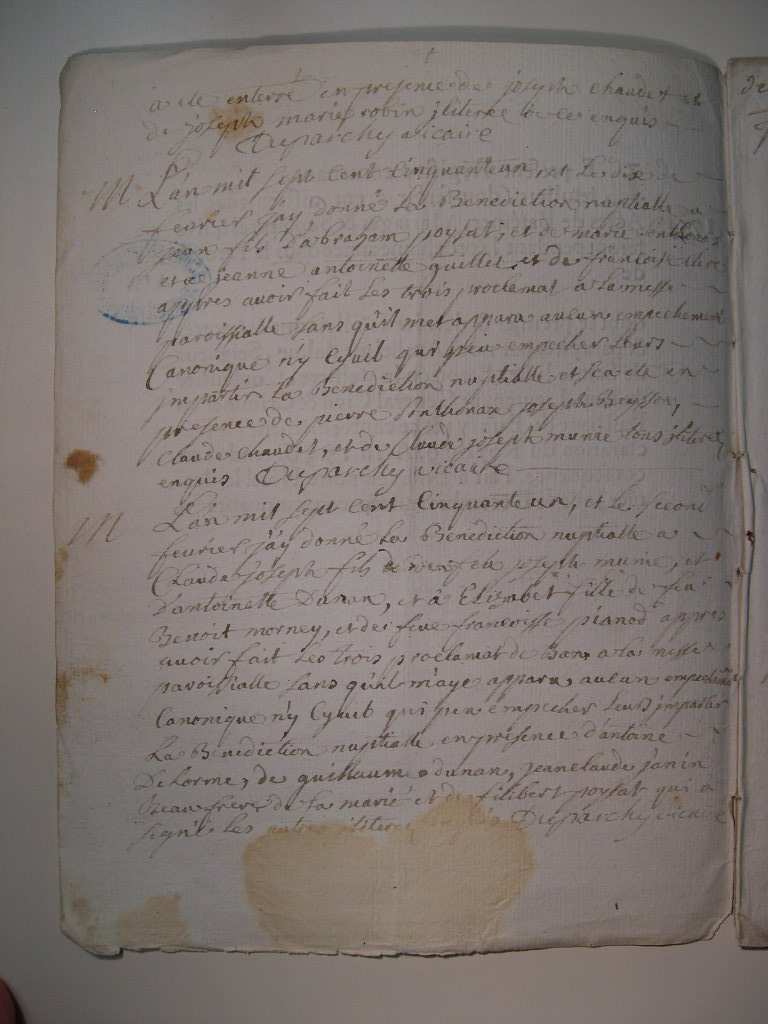 a ete enterré en presence de joseph chaudet et
de joseph marie robin jliteree de ce enquis
Duparchy vicaire
M L'an mil sept cent cinquanteun et le dix de
fevrier j'ay donné la Benediction nuptialle a
jean fils d'abraham poysat, et de marie
et a jeanne antoinette guillet, et de francoise
appres avoir fait les trois proclamat a la messe
paroissialle sans qu'il met apparu aucun empechement
Canonique n'y Cyvil qui peu empecher leurs
jmpartir la Benediction nuptialle et sea ete en
presence de pierre Ponthonax joseph
Claude Chaudet, et de Claude joseph munie tous jliteré
enquis Duparchy vicaire
M L'an mil sept cent Cinquanteun, et le
fevrier j'ay donné la Benediction nuptialle a
Claude joseph fils de joseph munie, et
d'antoinette Dunan, et a Elizabet fille de feu
Benoit morney, et de feue francoisse pianod appres
avoir fait les trois proclamat de Ban a la messe
paroissialle sans qu'il m'aye apparu aucun empechem
Canonique n'y Cyvil qui peu empecher leurs jmpartir
La Benediction nuptialle en presence d'antoine
Delorme, de guillaume dunan, jean claude janin
Beau frere de la marié et de filibert poysat qui a
signé les autres Duparchy vicaire